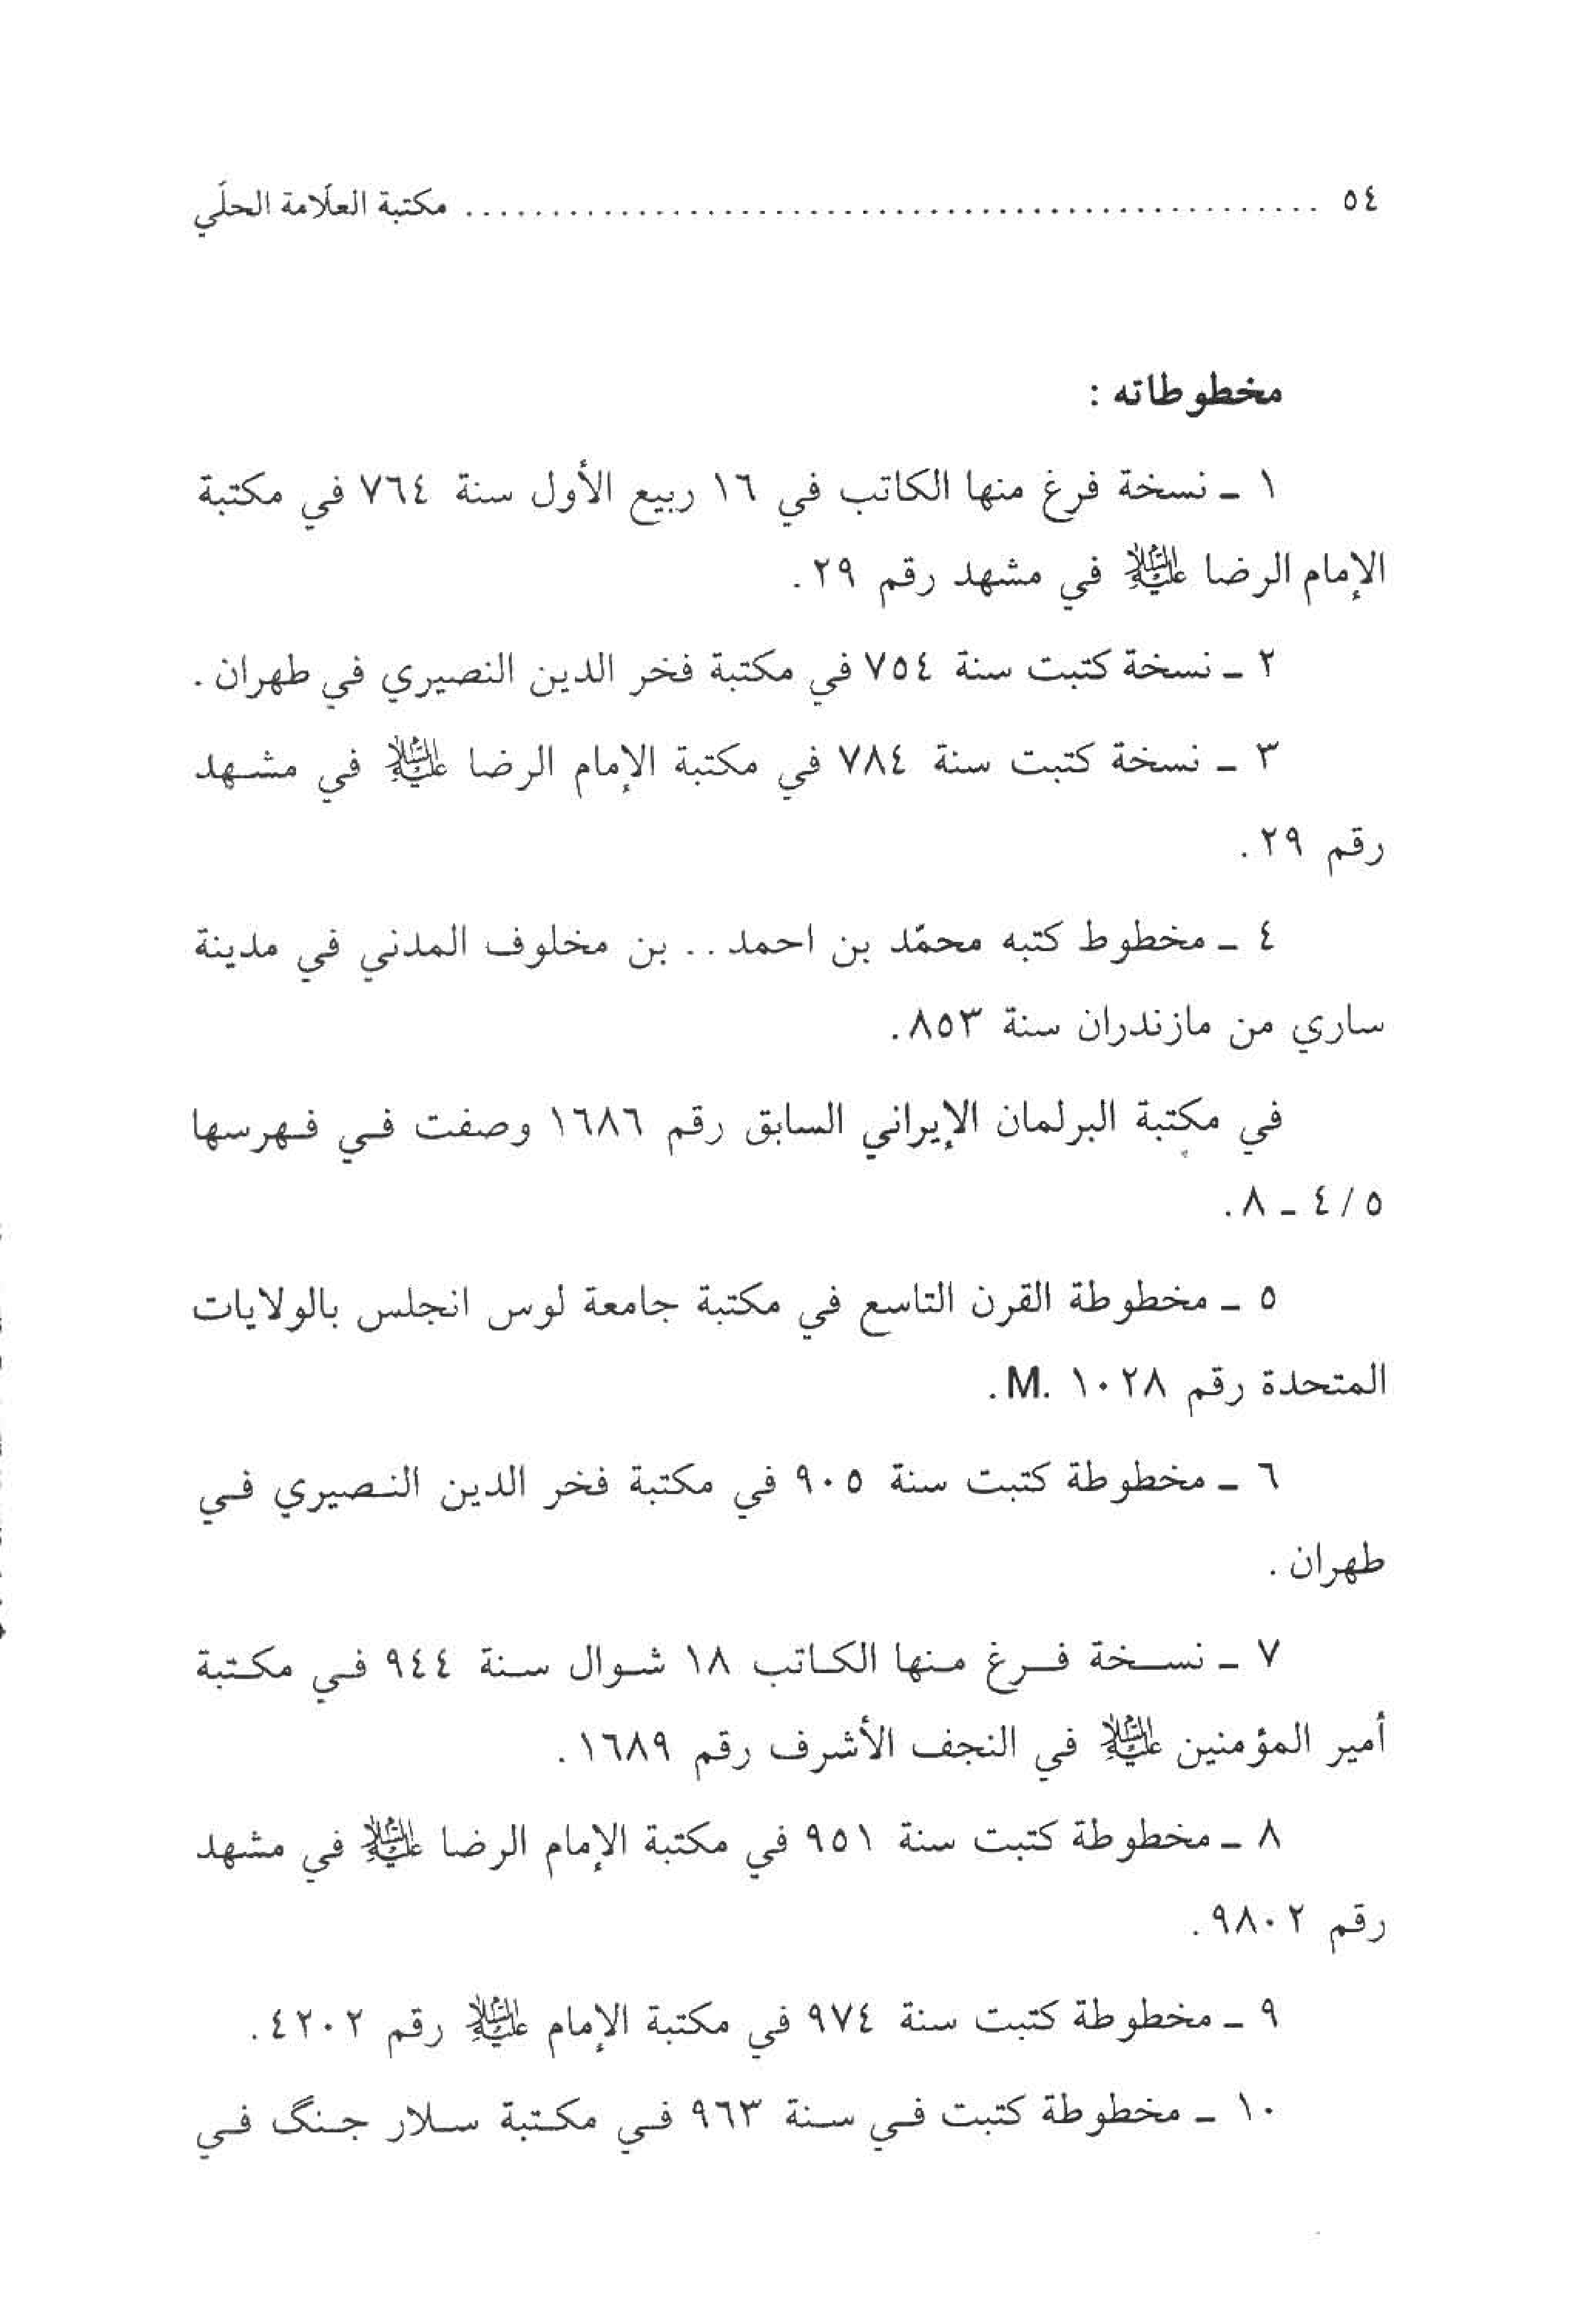 ٥٤ ........................................................ مكتبة العلّامة الحلّي
مخطوطاته :
١ ـ نسخة فرغ منها الكاتب في ١٦ ربيع الأول سنة ٧٦٤ في مكتبة
الإمام الرضا عليه السلام في مشهد رقم ٢٩.
٢ ـ نسخة كتبت سنة ٧٥٤ في مكتبة فخر الدين النصيري في طهران .
٣ ـ نسخة كتبت سنة ٧٨٤ في مكتبة الإمام الرضا عليه السلام في مشهد
رقم ٢٩.
٤ ـ مخطوط كتبه محمّد بن احمد .. بن مخلوف المدني في مدينة
ساري من مازندران سنة ٨٥٣.
في مكتبة البرلمان الإيراني السابق رقم ١٦٨٦ وصفت في فهرسها
٥/ ٤ ـ ٨.
٥ ـ مخطوطة القرن التاسع في مكتبة جامعة لوس انجلس بالولايات
المتحدة رقم ١٠٢٨ .M.
٦ ـ مخطوطة كتبت سنة ٩٠٥ في مكتبة فخر الدين النصيري في
طهران .
٧ ـ نسخة فرغ منها الكاتب ١٨ شوال سنة ٩٤٤ في مكتبة
أمير المؤمنين عليه السلام في النجف الأشرف رقم ١٦٨٩.
٨ ـ مخطوطة كتبت سنة ٩٥١ في مكتبة الإمام الرضا عليه السلام في مشهد
رقم ٩٨٠٢.
٩ ـ مخطوطة كتبت سنة ٩٧٤ في مكتبة الإمام عليه السلام رقم ٤٢٠٢.
١٠ ـ مخطوطة كتبت في سنة ٩٦٣ في مكتبة سلار جنگ في